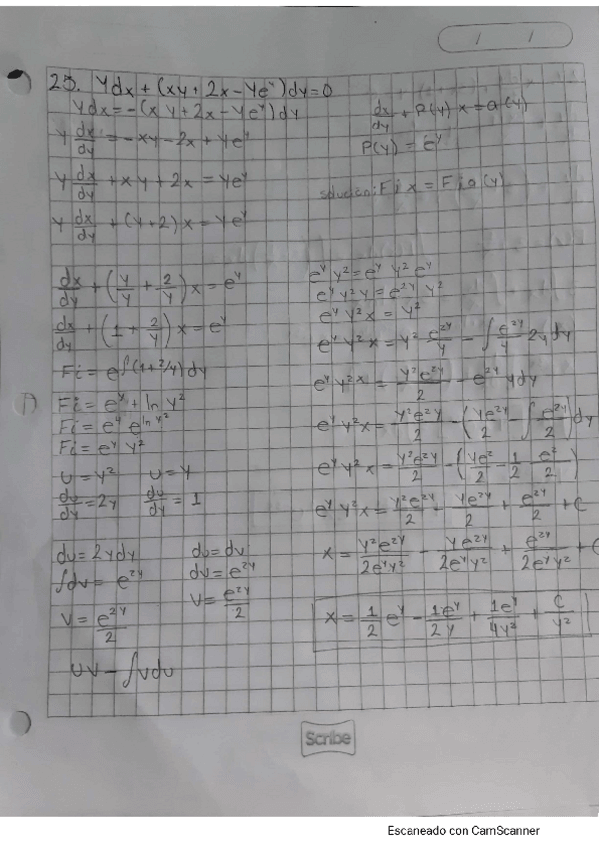 / /
25. Ydx + (xy + 2x - Ye^y)dy = 0
Ydx = -(xy + 2x - Ye^y)dy
dx/dy + P(y) x = Q(y)
Y dx/dy = -xy - 2x + Ye^y
P(y) = e^y
Y dx/dy + xy + 2x = Ye^y
solución: Fi x = Fi Q(y)
Y dx/dy + (y + 2) x = Ye^y
dx/dy + (y/y + 2/y) x = e^y
dx/dy + (1 + 2/y) x = e^y
Fi = e^∫(1 + 2/y) dy
Fi = e^y + ln y^2
Fi = e^y e^ln y^2
Fi = e^y y^2
u = y^2 u = y
du/dy = 2y du/dy = 1
du = 2ydy du = du
∫dv = e^2y dv = e^2y
v = e^2y/2 v = e^2y/2
uv - ∫vdu
e^y y^2 = e^y y^2 e^y
e^y y^2 y = e^2y y^2
e^y y^2 x = y^2
e^y y^2 x = y^2 e^2y/y - ∫ e^2y/y 2y dy
e^y y^2 x = y^2 e^2y/2 - e^2y y dy
e^y y^2 x = y^2 e^2y/2 - (ye^2y/2 - ∫ e^2y/2) dy
e^y y^2 x = y^2 e^2y/2 - (ye^2/2 - 1/2 e^2/2)
e^y y^2 x = y^2 e^2y/2 + ye^2y/2 + e^2y/2 + C
x = y^2 e^2y/2e^y y^2 - ye^2y/2e^y y^2 + e^2y/2e^y y^2 + C
x = 1/2 e^y - 1e^y/2y + 1e^y/4y^2 + C/y^2
Scribe
Escaneado con CamScanner